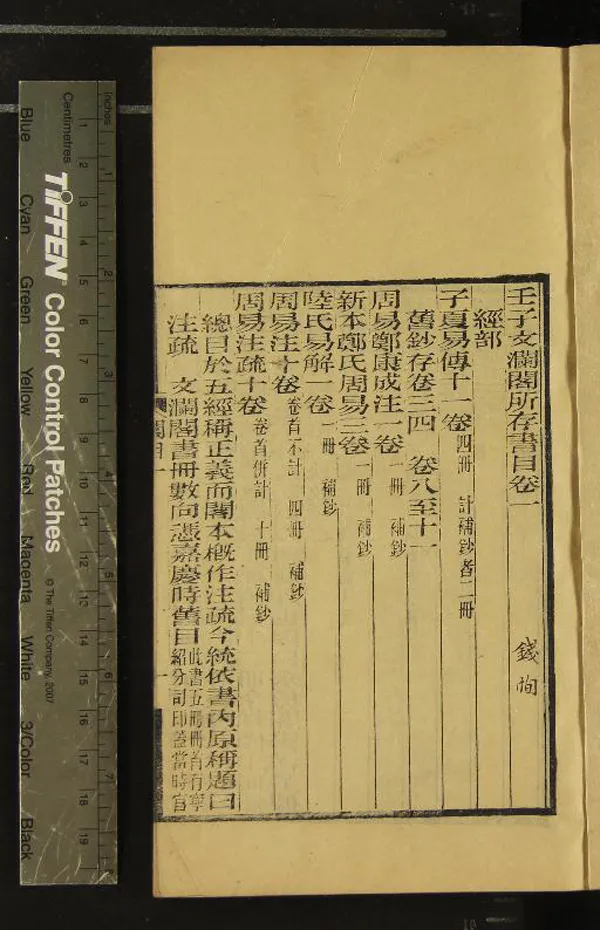 壬子文瀾閣所存書目卷一
錢恂
經部
子夏易傳十一卷 四冊 計補鈔者二冊
舊鈔存卷三四 卷八至十一
周易鄭康成注一卷 一冊 補鈔
新本鄭氏周易三卷 一冊 補鈔
陸氏易解一卷 一冊 補鈔
周易注十卷 卷首不計 四冊 補鈔
周易注疏十卷 卷首併計 十冊 補鈔
總目於五經稱正義而閣本概作注疏今統依書內原稱題曰
注疏 文瀾閣書冊數向憑嘉慶時舊目 此書五冊冊首有寧
紹分司印蓋當時官
Inches
Centimetres
1 2 3 4 5 6 7
1 2 3 4 5 6 7 8 9 10 11 12 13 14 15 16 17 18 19
TIFFEN Color Control Patches
© The Tiffen Company, 2007
Blue Cyan Green Yellow Red Magenta White 3/Color Black